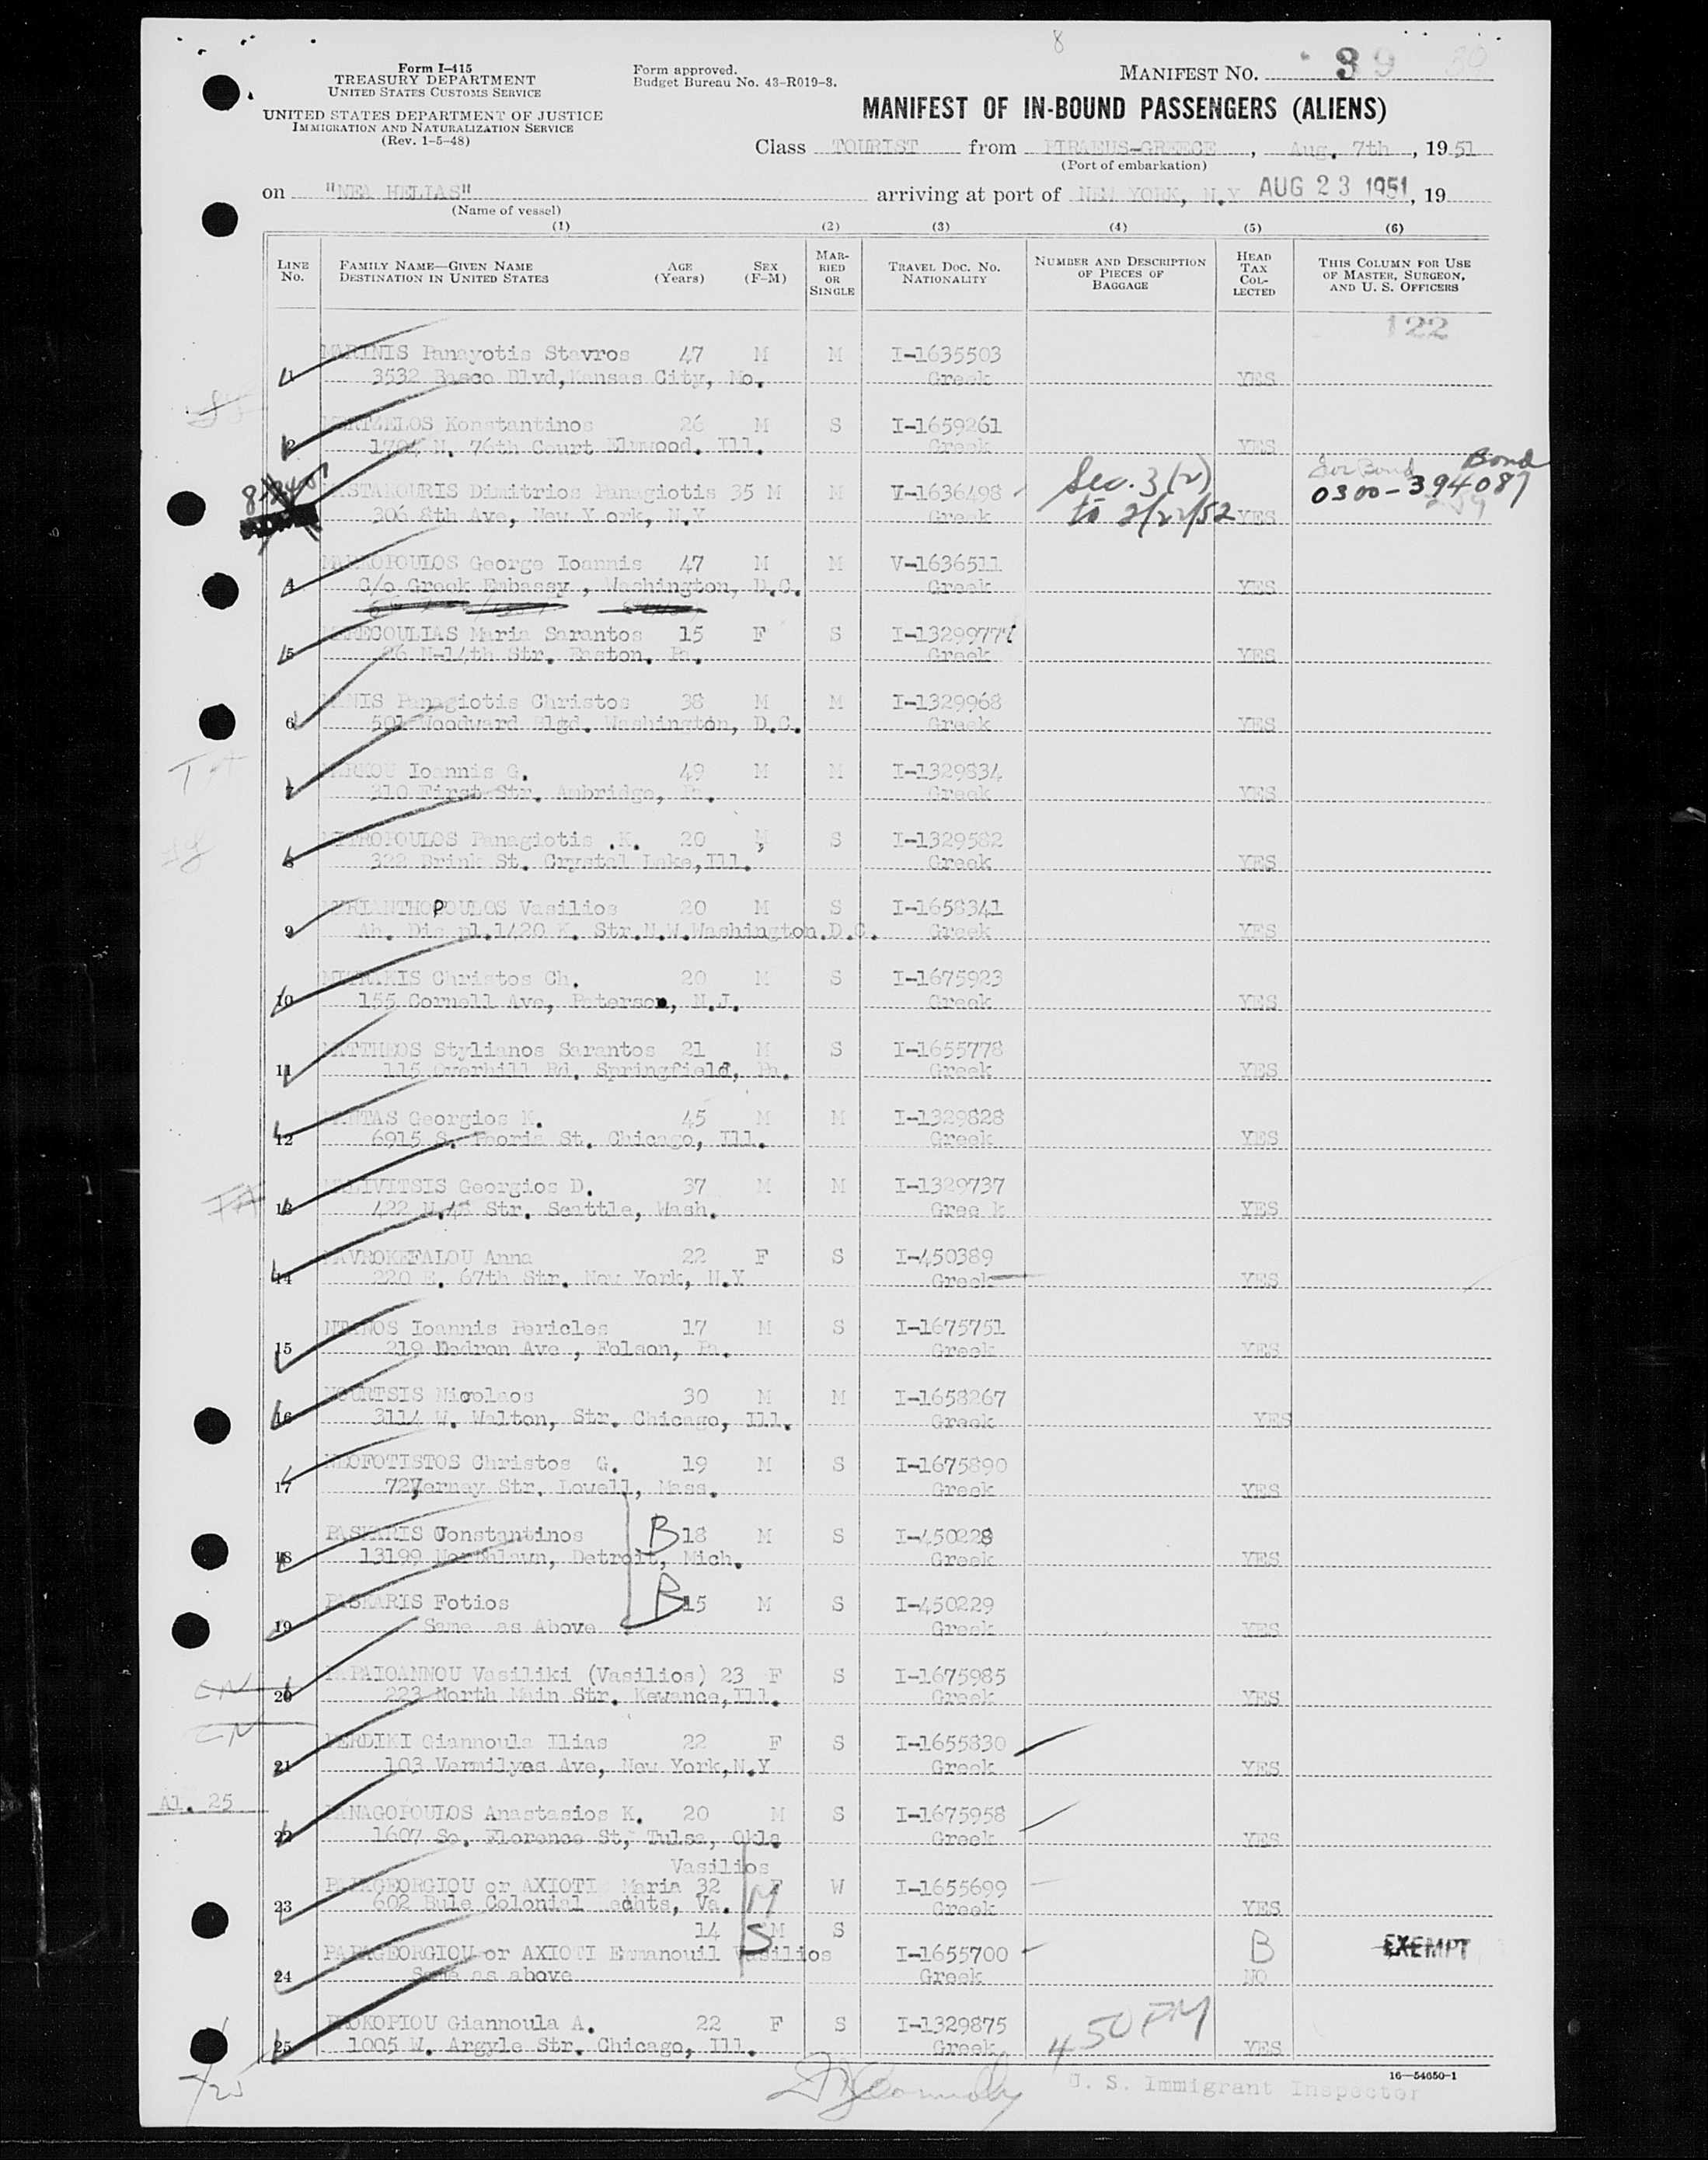 8
Form I-415
TREASURY DEPARTMENT
UNITED STATES CUSTOMS SERVICE
UNITED STATES DEPARTMENT OF JUSTICE
IMMIGRATION AND NATURALIZATION SERVICE
(Rev. 1-5-48)
Form approved.
Budget Bureau No. 43-R019-3.
MANIFEST NO. 39
MANIFEST OF IN-BOUND PASSENGERS (ALIENS)
Class TOURIST from PIRAEUS-GREECE, Aug. 7th, 1951
(Port of embarkation)
on "NEA HELLAS" arriving at port of NEW YORK, N.Y AUG 23 1951, 19
(Name of vessel)
(1) (2) (3) (4) (5) (6)
LINE NO. FAMILY NAME—GIVEN NAME DESTINATION IN UNITED STATES AGE (Years) SEX (F-M) MARRIED OR SINGLE TRAVEL DOC. NO. NATIONALITY NUMBER AND DESCRIPTION OF PIECES OF BAGGAGE HEAD TAX COLLECTED THIS COLUMN FOR USE OF MASTER, SURGEON, AND U. S. OFFICERS
122
MARINIS Panayotis Stavros 47 M M I-1635503
1 3532 Basco Blvd, Kansas City, Mo. Greek YES
Konstantinos 26 M S I-1659261
2 1704 N. 76th Court Elmwood. Ill. Greek YES
Dimitrios Panagiotis 35 M M V-1636498 Sec. 3(2) Bond
306 8th Ave, New York, N.Y Greek to 2/22/52 YES 0300-394087
MARKOPOULOS George Ioannis 47 M M V-1636511
4 C/o Greek Embassy, Washington, D.C. Greek YES
Maria Sarantos 15 F S I-1329977
5 26 N-14th Str. Easton. Pa. Greek YES
MANIS Panagiotis Christos 38 M M I-1329968
6 501 Woodward Blgd. Washington, D.C. Greek YES
MARKOU Ioannis G. 49 M M I-1329834
7 310 First Str. Ambridge, Pa. Greek YES
MITROPOULOS Panagiotis .K. 20 M S I-1329582
8 322 Brink St. Crystal Lake, Ill. Greek YES
MYRIANTHOPOULOS Vasilios 20 M S I-1658341
9 Ah. Dis pl. 1420 K. Str. N.W. Washington. D.C. Greek YES
Christos Ch. 20 M S I-1675923
10 155 Cornell Ave, Paterson, N.J. Greek YES
MATTHEOS Stylianos Sarantos 21 M S I-1655778
11 115 Overhill Rd. Springfield, Pa. Greek YES
MANTAS Georgios K. 45 M M I-1329828
12 6915 S. Peoria St. Chicago, Ill. Greek YES
Georgios D. 37 M M I-1329737
13 422 N.45 Str. Seattle, Wash. Gree k YES
MAVROKEFALOU Anna 22 F S I-450389
14 220 E. 67th Str. New York, N.Y Greek YES
NTANOS Ioannis Pericles 17 M S I-1675751
15 219 Ave, Folson, Pa. Greek YES
NOURTSIS Nicolaos 30 M M I-1658267
16 3114 W. Walton, Str. Chicago, Ill. Greek YES
NEOFOTISTOS Christos G. 19 M S I-1675890
17 72, Str. Lowell, Mass. Greek YES
PASKARIS Constantinos B 18 M S I-450228
18 13199 Northlawn, Detroit, Mich. Greek YES
PASKARIS Fotios B 15 M S I-450229
19 Same as Above Greek YES
PAPAIOANNOU Vasiliki (Vasilios) 23 F S I-1675985
20 223 North Main Str. Kewance, Ill. Greek YES
PERDIKI Giannoula Ilias 22 F S I-1655830
21 103 Vermilyes Ave, New York, N.Y Greek YES
Al. 25
PANAGOPOULOS Anastasios K. 20 M S I-1675958
22 1607 So. Florence St, Tulsa, Okla Greek YES
Vasilios
PAPAGEORGIOU or AXIOTI Maria 32 F W I-1655699
23 602 Bule Colonial, Va. M Greek YES
14 S M S
PAPAGEORGIOU or AXIOTI Emmanouil Vasilios I-1655700 B EXEMPT
24 Same as above Greek NO
PROKOPIOU Giannoula A. 22 F S I-1329875 4 50 PM
25 1005 W. Argyle Str. Chicago, Ill. Greek YES
16—54650-1
U. S. Immigrant Inspector